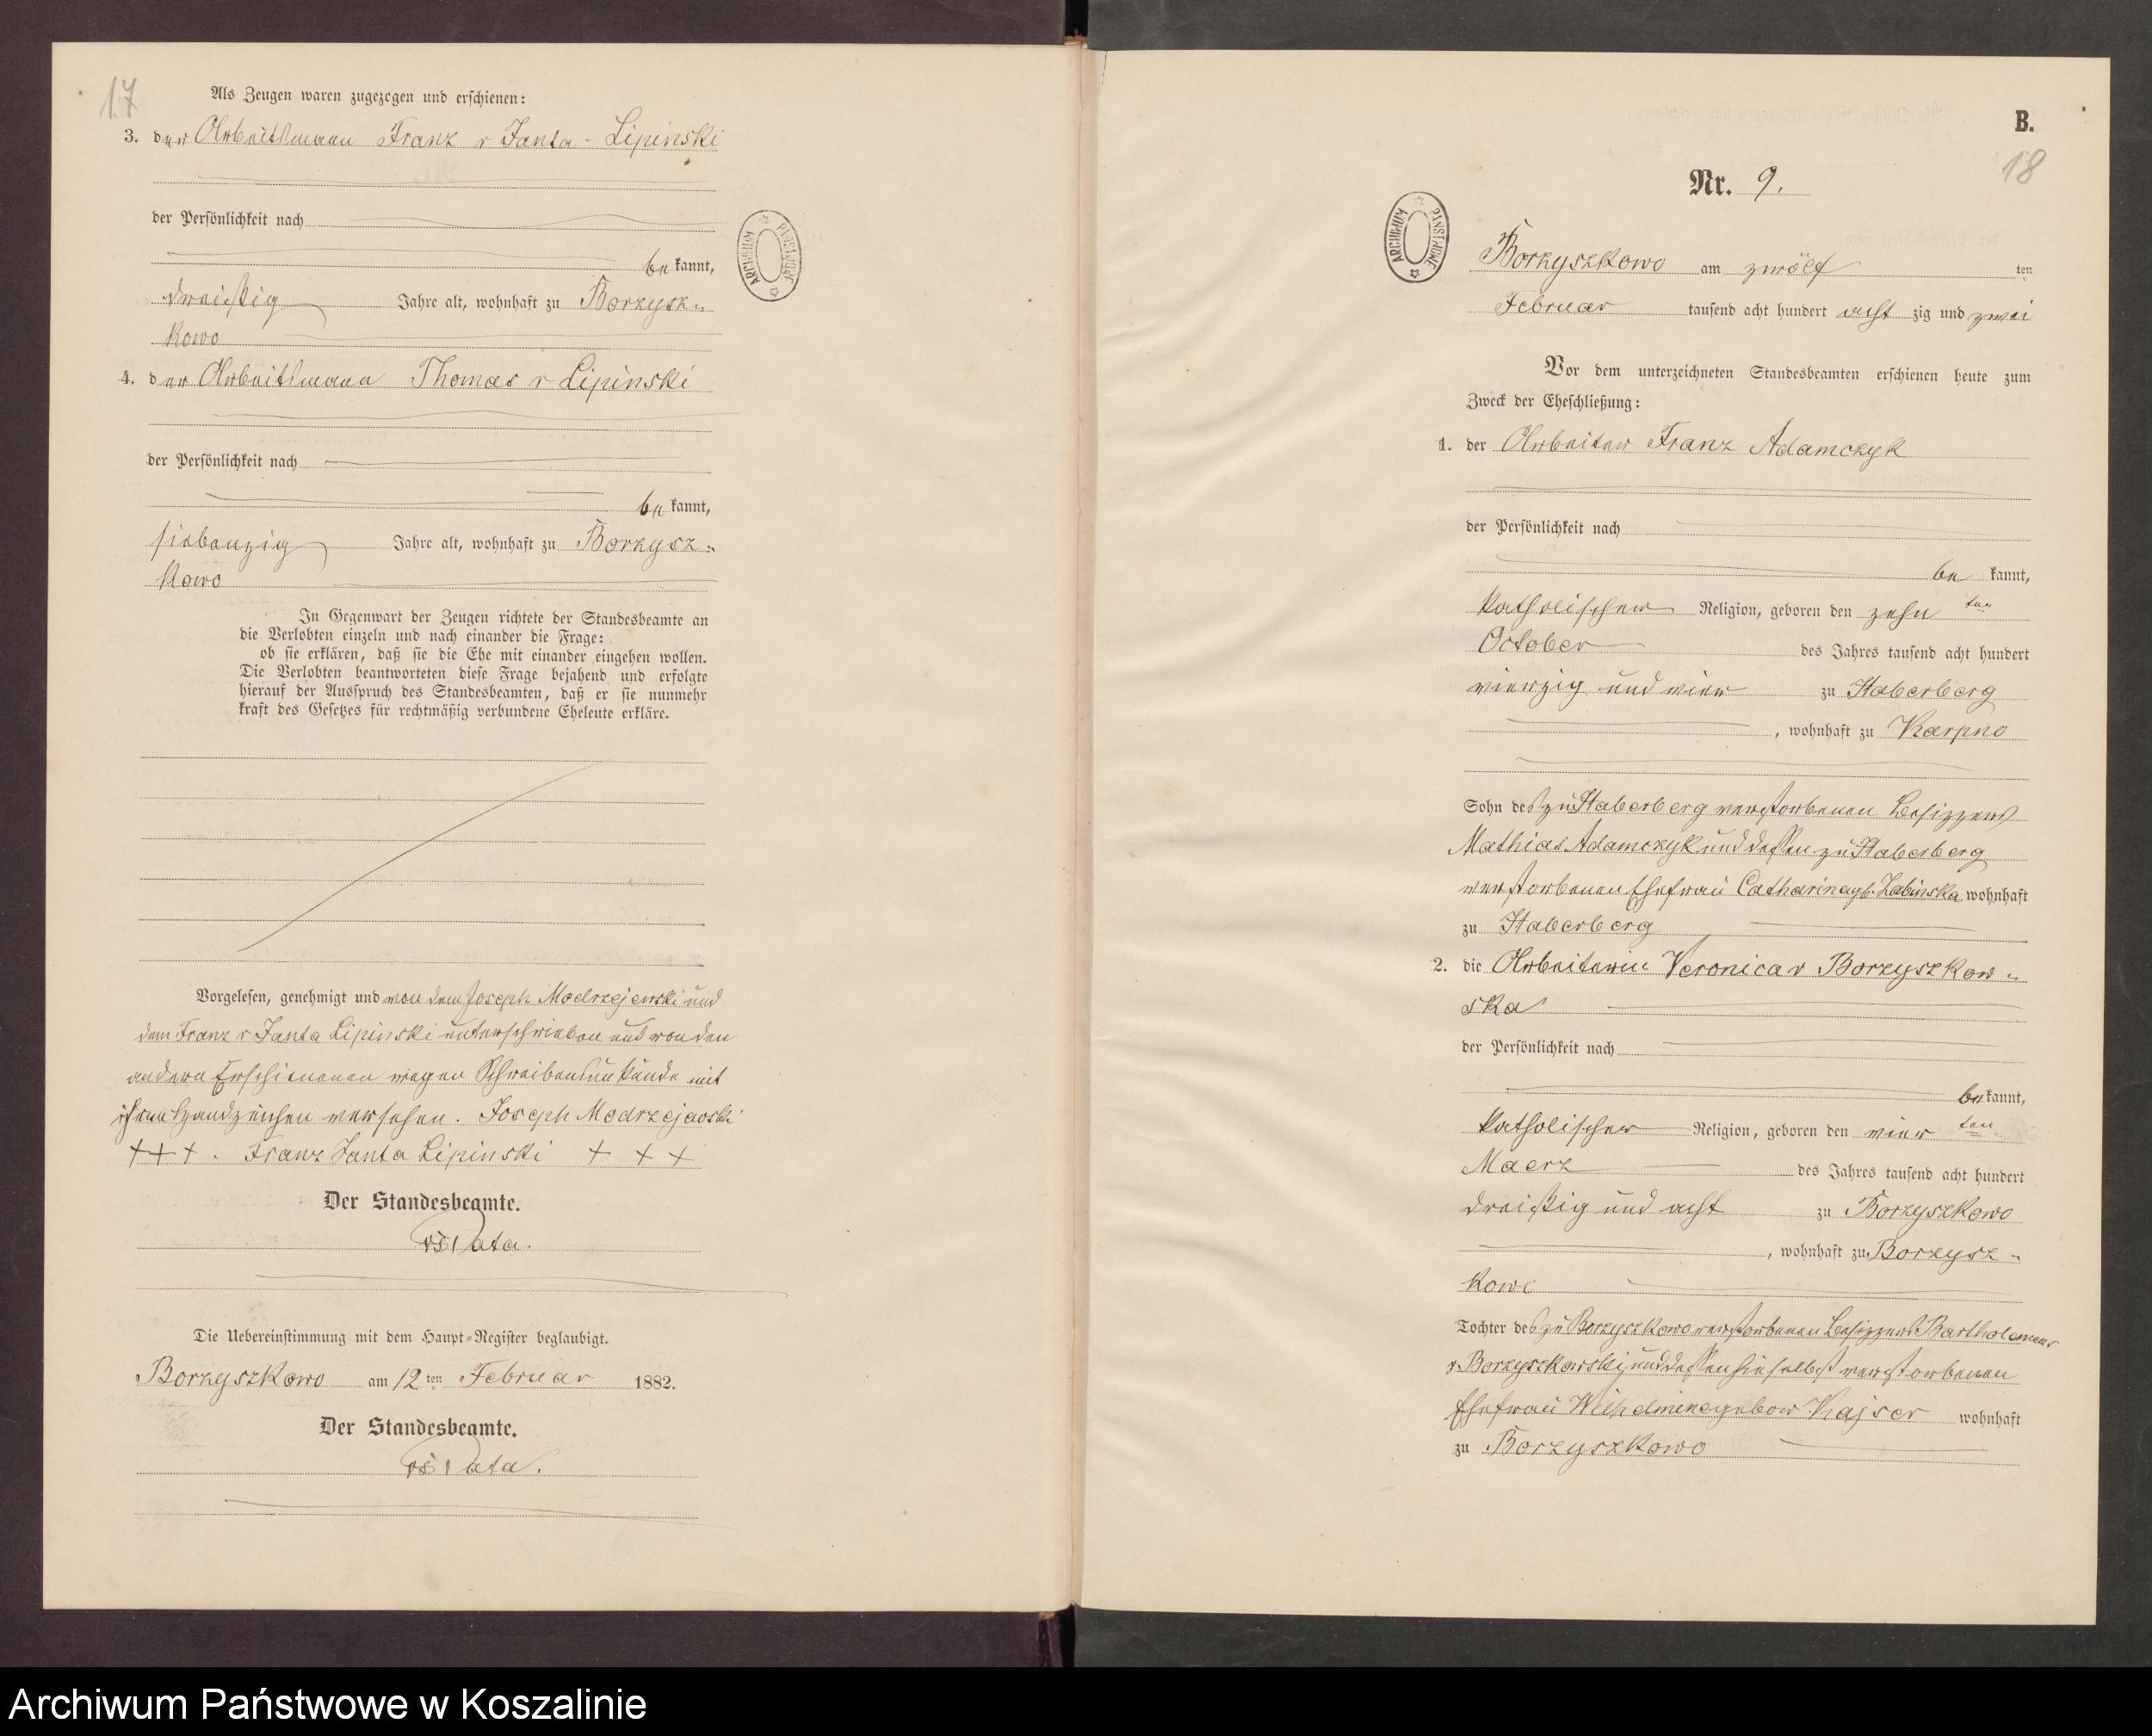 17
Als Zeugen waren zugezogen und erschienen:
3. der Arbeitsmann Franz v Janta - Lipinski
der Persönlichkeit nach
be kannt,
dreißig Jahre alt, wohnhaft zu Borzysz-
kowo
4. der Arbeitsmann Thomas v Lipinski
der Persönlichkeit nach
be kannt,
siebenzig Jahre alt, wohnhaft zu Borzysz-
kowo
In Gegenwart der Zeugen richtete der Standesbeamte an
die Verlobten einzeln und nach einander die Frage:
ob sie erklären, daß sie die Ehe mit einander eingehen wollen.
Die Verlobten beantworteten diese Frage bejahend und erfolgte
hierauf der Ausspruch des Standesbeamten, daß er sie nunmehr
kraft des Gesetzes für rechtmäßig verbundene Eheleute erkläre.
Vorgelesen, genehmigt und von dem Joseph Modrzejewski und
dem Franz v Janta Lipinski unterschrieben und von den
andern Erschienenen wegen Schreibensunkunde mit
ihren Handzeichen versehen. Joseph Modrzejewski
+++. Franz Janta Lipinski + + +
Der Standesbeamte.
Die Uebereinstimmung mit dem Haupt-Register beglaubigt.
Borzyszkowo am 12 ten Februar 1882.
Der Standesbeamte.
ARCHIWUM PAŃSTWOWE
B.
18
Nr. 9.
ARCHIWUM PAŃSTWOWE
Borzyszkowo am zwölf ten
Februar tausend acht hundert acht zig und zwei
Vor dem unterzeichneten Standesbeamten erschienen heute zum
Zweck der Eheschließung:
1. der Arbeiter Franz Adamczyk
der Persönlichkeit nach
be kannt,
katholischer Religion, geboren den zehn ten
October des Jahres tausend acht hundert
vierzig und vier zu Haberberg
, wohnhaft zu Karpno
Sohn des zu Haberberg verstorbenen Besizzers
Mathias Adamczyk und dessen zu Haberberg
verstorbenen Ehefrau Catharina gb. Zabinska wohnhaft
zu Haberberg
2. die Arbeiterin Veronica v Borzyszkow-
ska
der Persönlichkeit nach
be kannt,
katholischer Religion, geboren den vier ten
Maerz des Jahres tausend acht hundert
dreißig und acht zu Borzyszkowo
, wohnhaft zu Borzysz-
kowo
Tochter des zu Borzyszkowo verstorbenen Besizzers Bartholomeus
v. Borzyszkowski und dessen hieselbst verstorbenen
Ehefrau Wilhelmine gebor. Kajser wohnhaft
zu Borzyszkowo
Archiwum Państwowe w Koszalinie